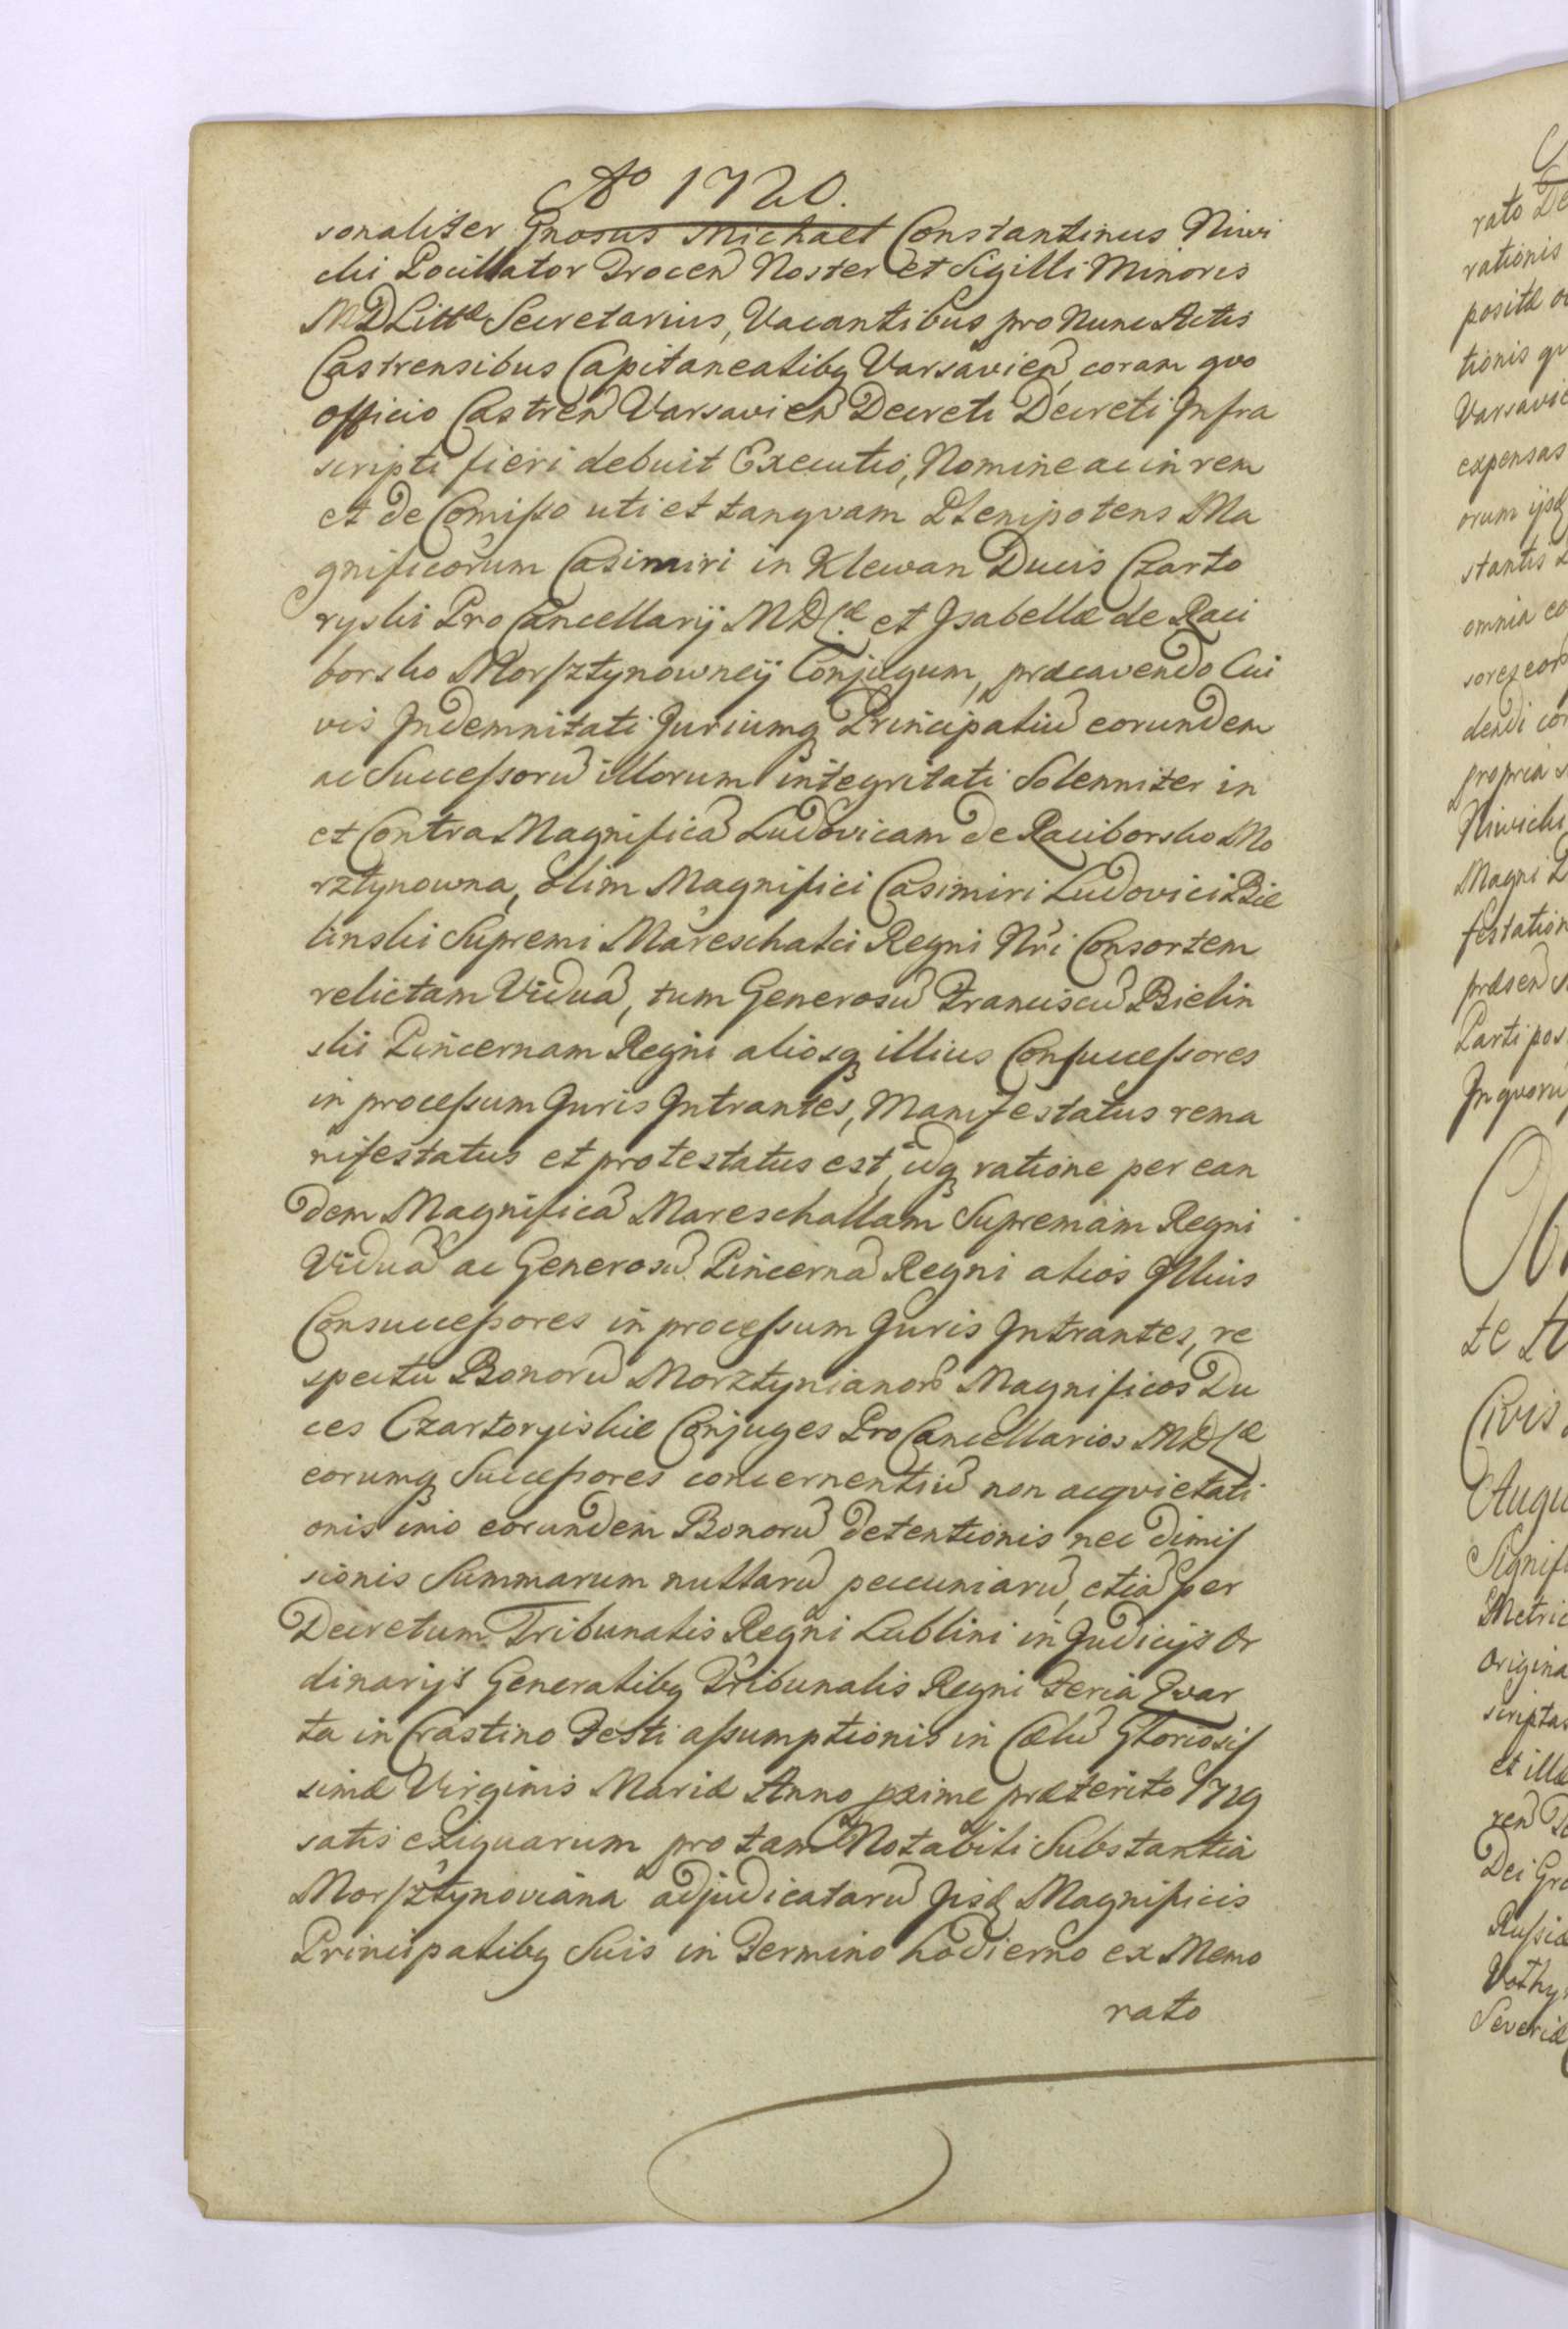 Aô 1720.
sonaliter Gnosus Michael Constantinus Niwi
cki Pocillator Drocen̄ Noster et Sigilli Minoris
MDLittæ Secretarius, Vacantibus pro Nunc Actis
Castrensibus Capitanealibq Varsavien̄, coram quo
officio Castren̄ Varsavien̄ Decreti Decreti Infra
scripti fieri debuit Executio, Nomine ac in rem
et de Comisso uti et tanqvam Plenipotens Ma
gnificorum Casimiri in Klewan Ducis Czarto
ryski Pro Cancellarij MDLæ et Isabellæ de Raci
borsko Morsztynowney Conjugum, præcavendo Cui
vis Indemnitati Juriumq Principaliū eorundem
ac Successorū illorum integritati Solenniter in
et Contra Magnificā Ludovicam de Raciborsko Mo
rztynowna, olim Magnifici Casimiri Ludovici Bie
linski Supremi Mareschalci Regni Nr̄i Consortem
relictam Viduā, tum Generosū Franciscū Bielin
ski Pincernam Regni aliosq illius Consuccessores
in processum Juris Intrantes, Manifestatus rema
nifestatus et protestatus est, idq ratione per ean
dem Magnificā Mareschallam Supremam Regni
Viduā ac Generosū Pincernā Regni alios Illius
Consuccessores in processum Juris Intrantes, re
spectu Bonorū Morztynianorū Magnificos Du
ces Czartoryiskie Conjuges Pro Cancellarios MDLæ
eorumq Successores concernentiū non acqvietati
onis imo eorundem Bonorū detentionis nec dimis
sionis Summarum nullarū pecuniarū, etiā per
Decretum Tribunalis Regni Lublini in Judicijs Or
dinarijs Generalibq Tribunalis Regni Feria Qvar
ta in Crastino Festi assumptionis in Cælū Gloriosis
simæ Virginis Mariæ Anno pxime præterito 1719
satis exiguarum pro tam Notabili Substantia
Morsztynoviana adjudicatarū Iisd Magnificis
Principalibq Suis in Termino hodierno ex Memo
rato